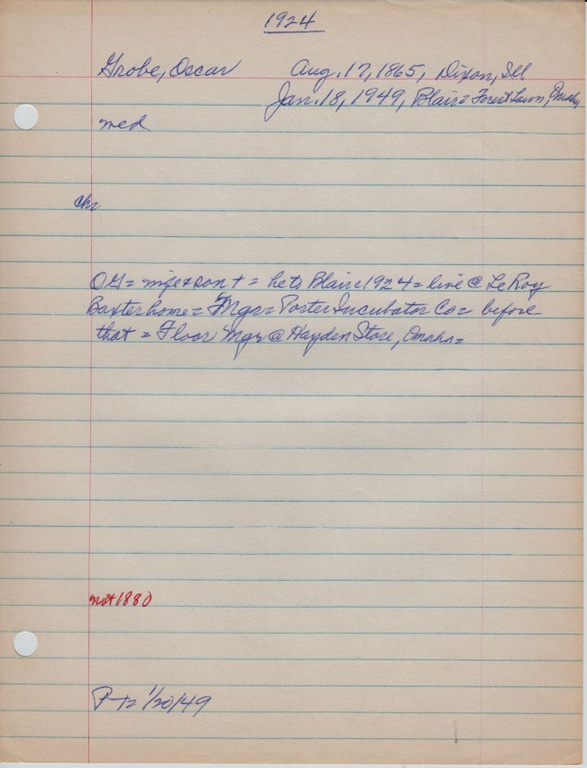 1924
Grobe, Oscar Aug. 17, 1865, Dixon, Ill
Jan. 18, 1949, Blair= Forest Lawn, Omaha
med
chr
OG= wife & son + = he to Blair 1924 = live @ LeRoy
Baxter home = Mgr= Porter Incubator Co = before
that = Floor Mgr @ Hayden Store, Omaha=
not 1880
P-12 1/20/49